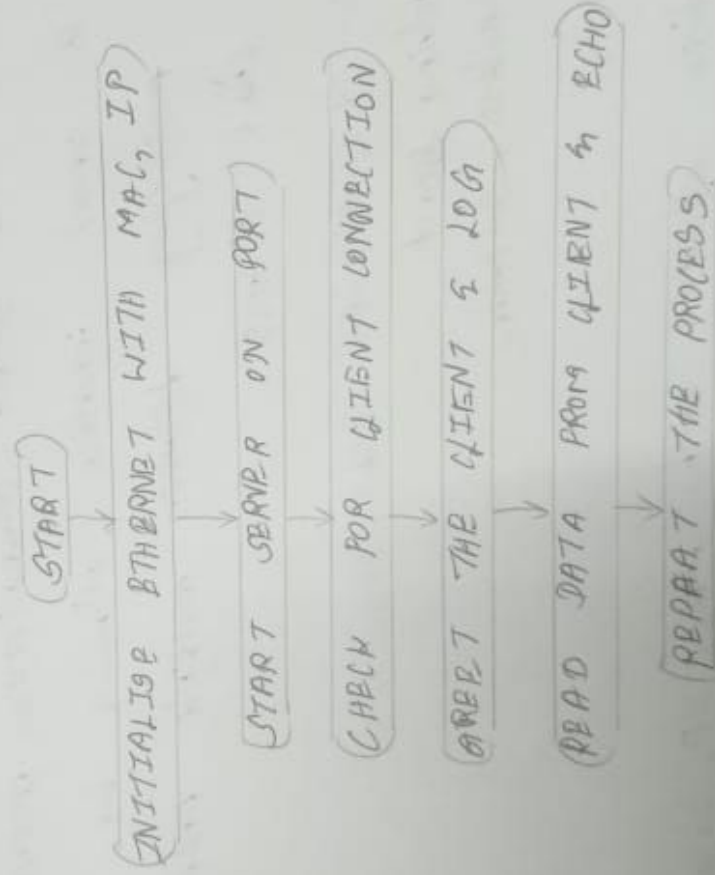 START
INITIALISE ETHERNET WITH MAC, IP
START SERVER ON PORT
CHECK FOR CLIENT CONNECTION
GREET THE CLIENT & LOG
READ DATA FROM CLIENT & ECHO
REPEAT THE PROCESS.